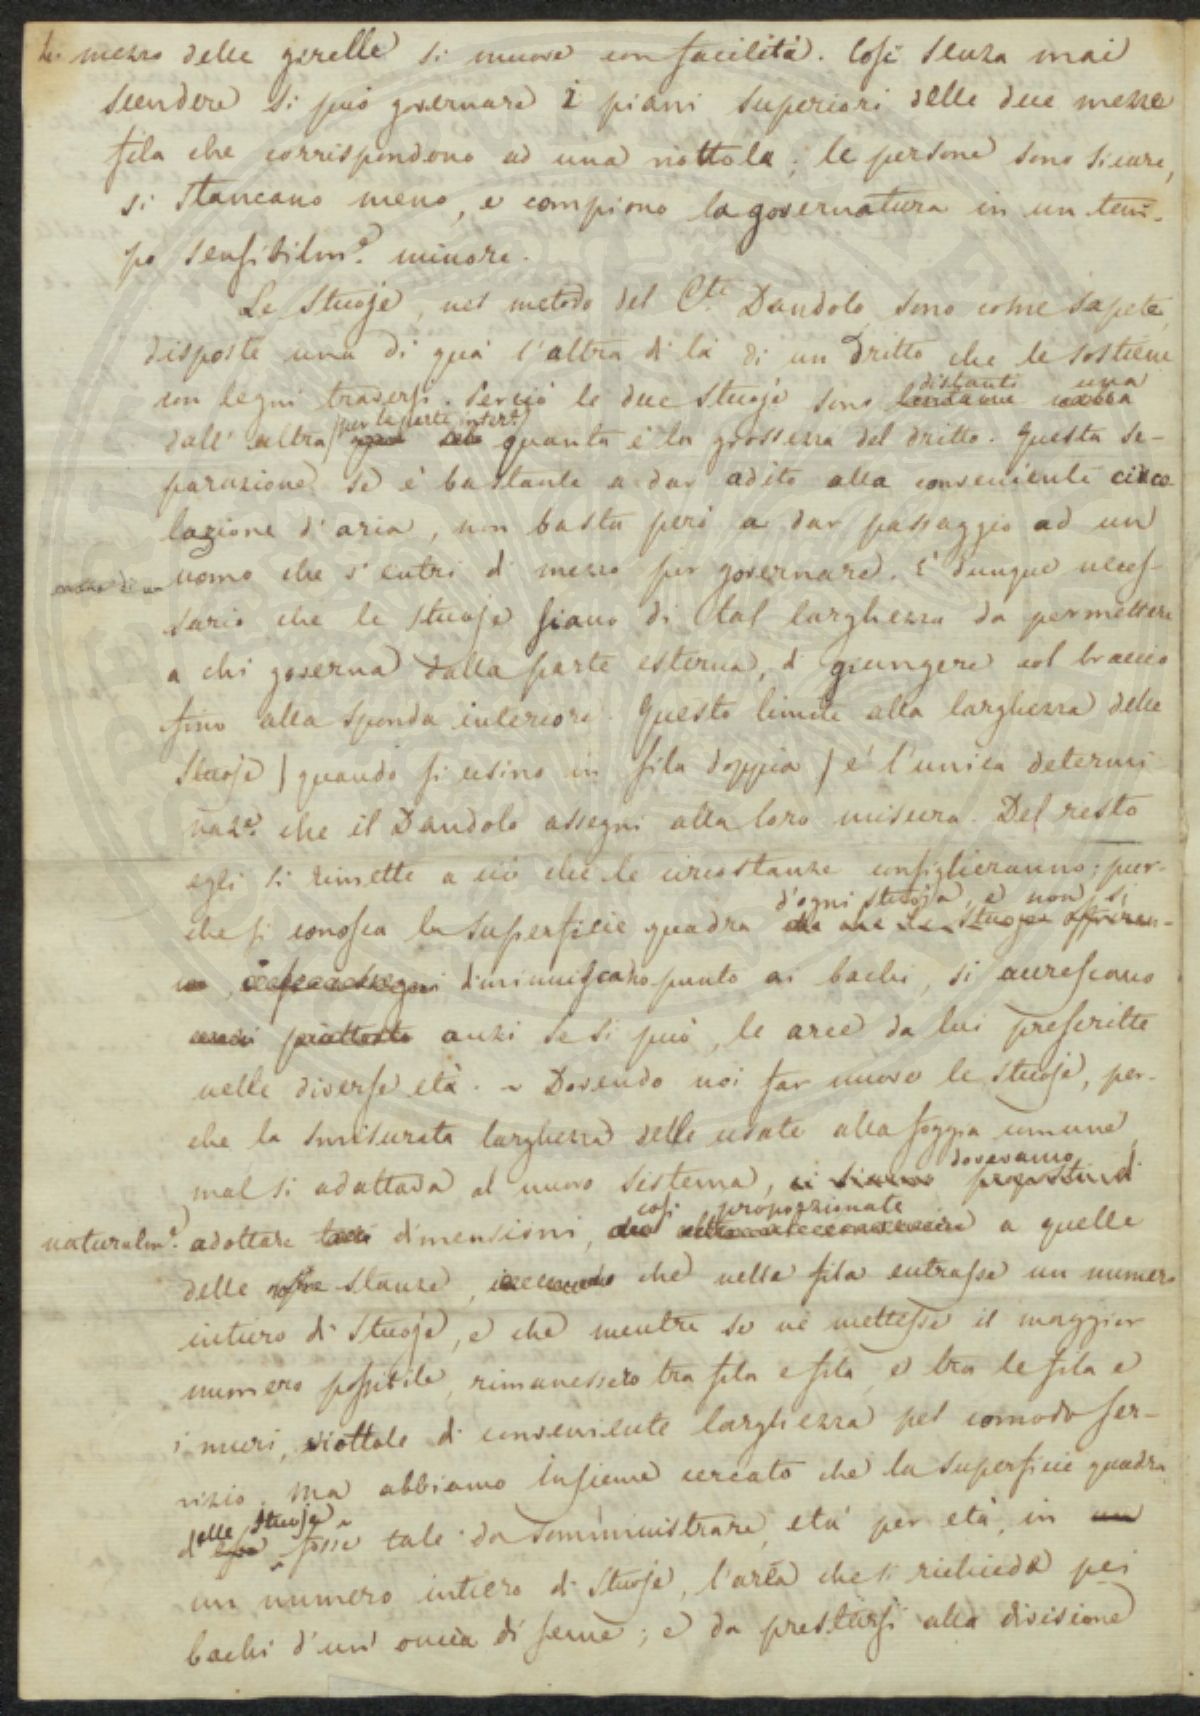 mezzo delle girelle si muove con facilità. Così senza mai
scendere si può governare i piani superiori delle due mezze
fila che corrispondono ad una viottola; le persone sono sicure,
si stancano meno, e compiono la governatura in un tem-
po sensibilm.e minore.
Le stuoje, nel metodo del C.te Dandolo, sono come sapete,
disposte una di quà l'altra di là di un dritto che le sostiene
con legni traversi. Perciò le due stuoje sono distanti una
dall'altra (per la parte inter.a) quanta è la grossezza del dritto. Questa se-
parazione se è bastante a dar adito alla conveniente circo
lazione d'aria, non basta però a dar passaggio ad un
uomo che s'entri di mezzo per governare. E' dunque neces-
sario che le stuoje siano di tal larghezza da permettere
a chi governa dalla parte esterna, di giungere col braccio
fino alla sponda interiore. Questo limite alla larghezza delle
stuoje (quando si usino in fila doppia) è l'unica determi
naz.e che il Dandolo assegni alla loro misura. Del resto
egli si rimette a ciò che le circostanze consiglieranno; pur-
che si conosca la superficie quadra d'ogni stuoja, e non si
diminuiscano punto ai bachi, si accrescano
piuttosto anzi se si può, le aree da lui prescritte
nelle diverse età. ~ Dovendo noi far nuove le stuoje, per-
che la smisurata larghezza delle usate alla foggia comune,
mal si adattava al nuovo sistema, dovevamo
naturalm.e adottare dimensioni, così proporzionate a quelle
delle nostre stanze, che nella fila entrasse un numero
intiero di stuoje, e che mentre se ne mettesse il maggior
numero possibile, rimanessero tra fila e fila, e tra le fila e
i muri, viottole di conveniente larghezza pel comodo ser-
vizio. Ma abbiamo insieme cercato che la superficie quadra
delle stuoje fosse tale da somministrare, età per età, in
un numero intiero di stuoje, l'area che si richiede pei
bachi d'un' oncia di seme; e da prestarsi alla divisione